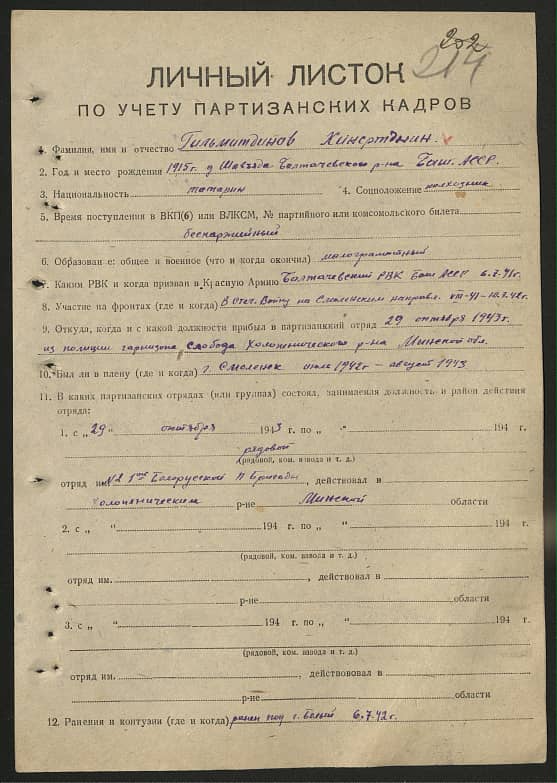 252
214
ЛИЧНЫЙ ЛИСТОК
ПО УЧЕТУ ПАРТИЗАНСКИХ КАДРОВ
1. Фамилия, имя и отчество Гильмитдинов
2. Год и место рождения 1915г. д. Балтачевского р-на Баш. АССР.
3. Национальность татарин 4. Соцположение колхозник
5. Время поступления в ВКП(б) или ВЛКСМ, № партийного или комсомольского билета
беспартийный
6. Образование: общее и военное (что и когда окончил) малограмотный
7. Каким РВК и когда призван в Красную Армию Балтачевский РВК Баш АССР 6.7.41г.
8. Участие на фронтах (где и когда) В Отеч. Войну на Смоленском направл. VIII-41-10.7.42г.
9. Откуда, когда и с какой должности прибыл в партизанский отряд 29 октября 1943г.
из полиции гарнизона Слобода Холопинического р-на Минской обл.
10. Был ли в плену (где и когда) г. Смоленск июль 1942г - август 1943
11. В каких партизанских отрядах (или группах) состоял, занимаемая должность и район действия
отряда:
1. с „ 29 “ октября 1943 г. по „ “ 194 г.
рядовой
(рядовой, ком. взвода и т. д.)
отряд им. №2 1ой Белорусской П Бригады, действовал в
р-не Минской области
2. с „ “ 194 г. по „ “ 194 г.
(рядовой, ком. взвода и т. д.)
отряд им. , действовал в
р-не области
3. с „ “ 194 г. по „ “ 194 г.
(рядовой, ком. взвода и т. д.)
отряд им. , действововал в
р-не области
12. Ранения и контузии (где и когда) ранен под г. Белый 6.7.42г.